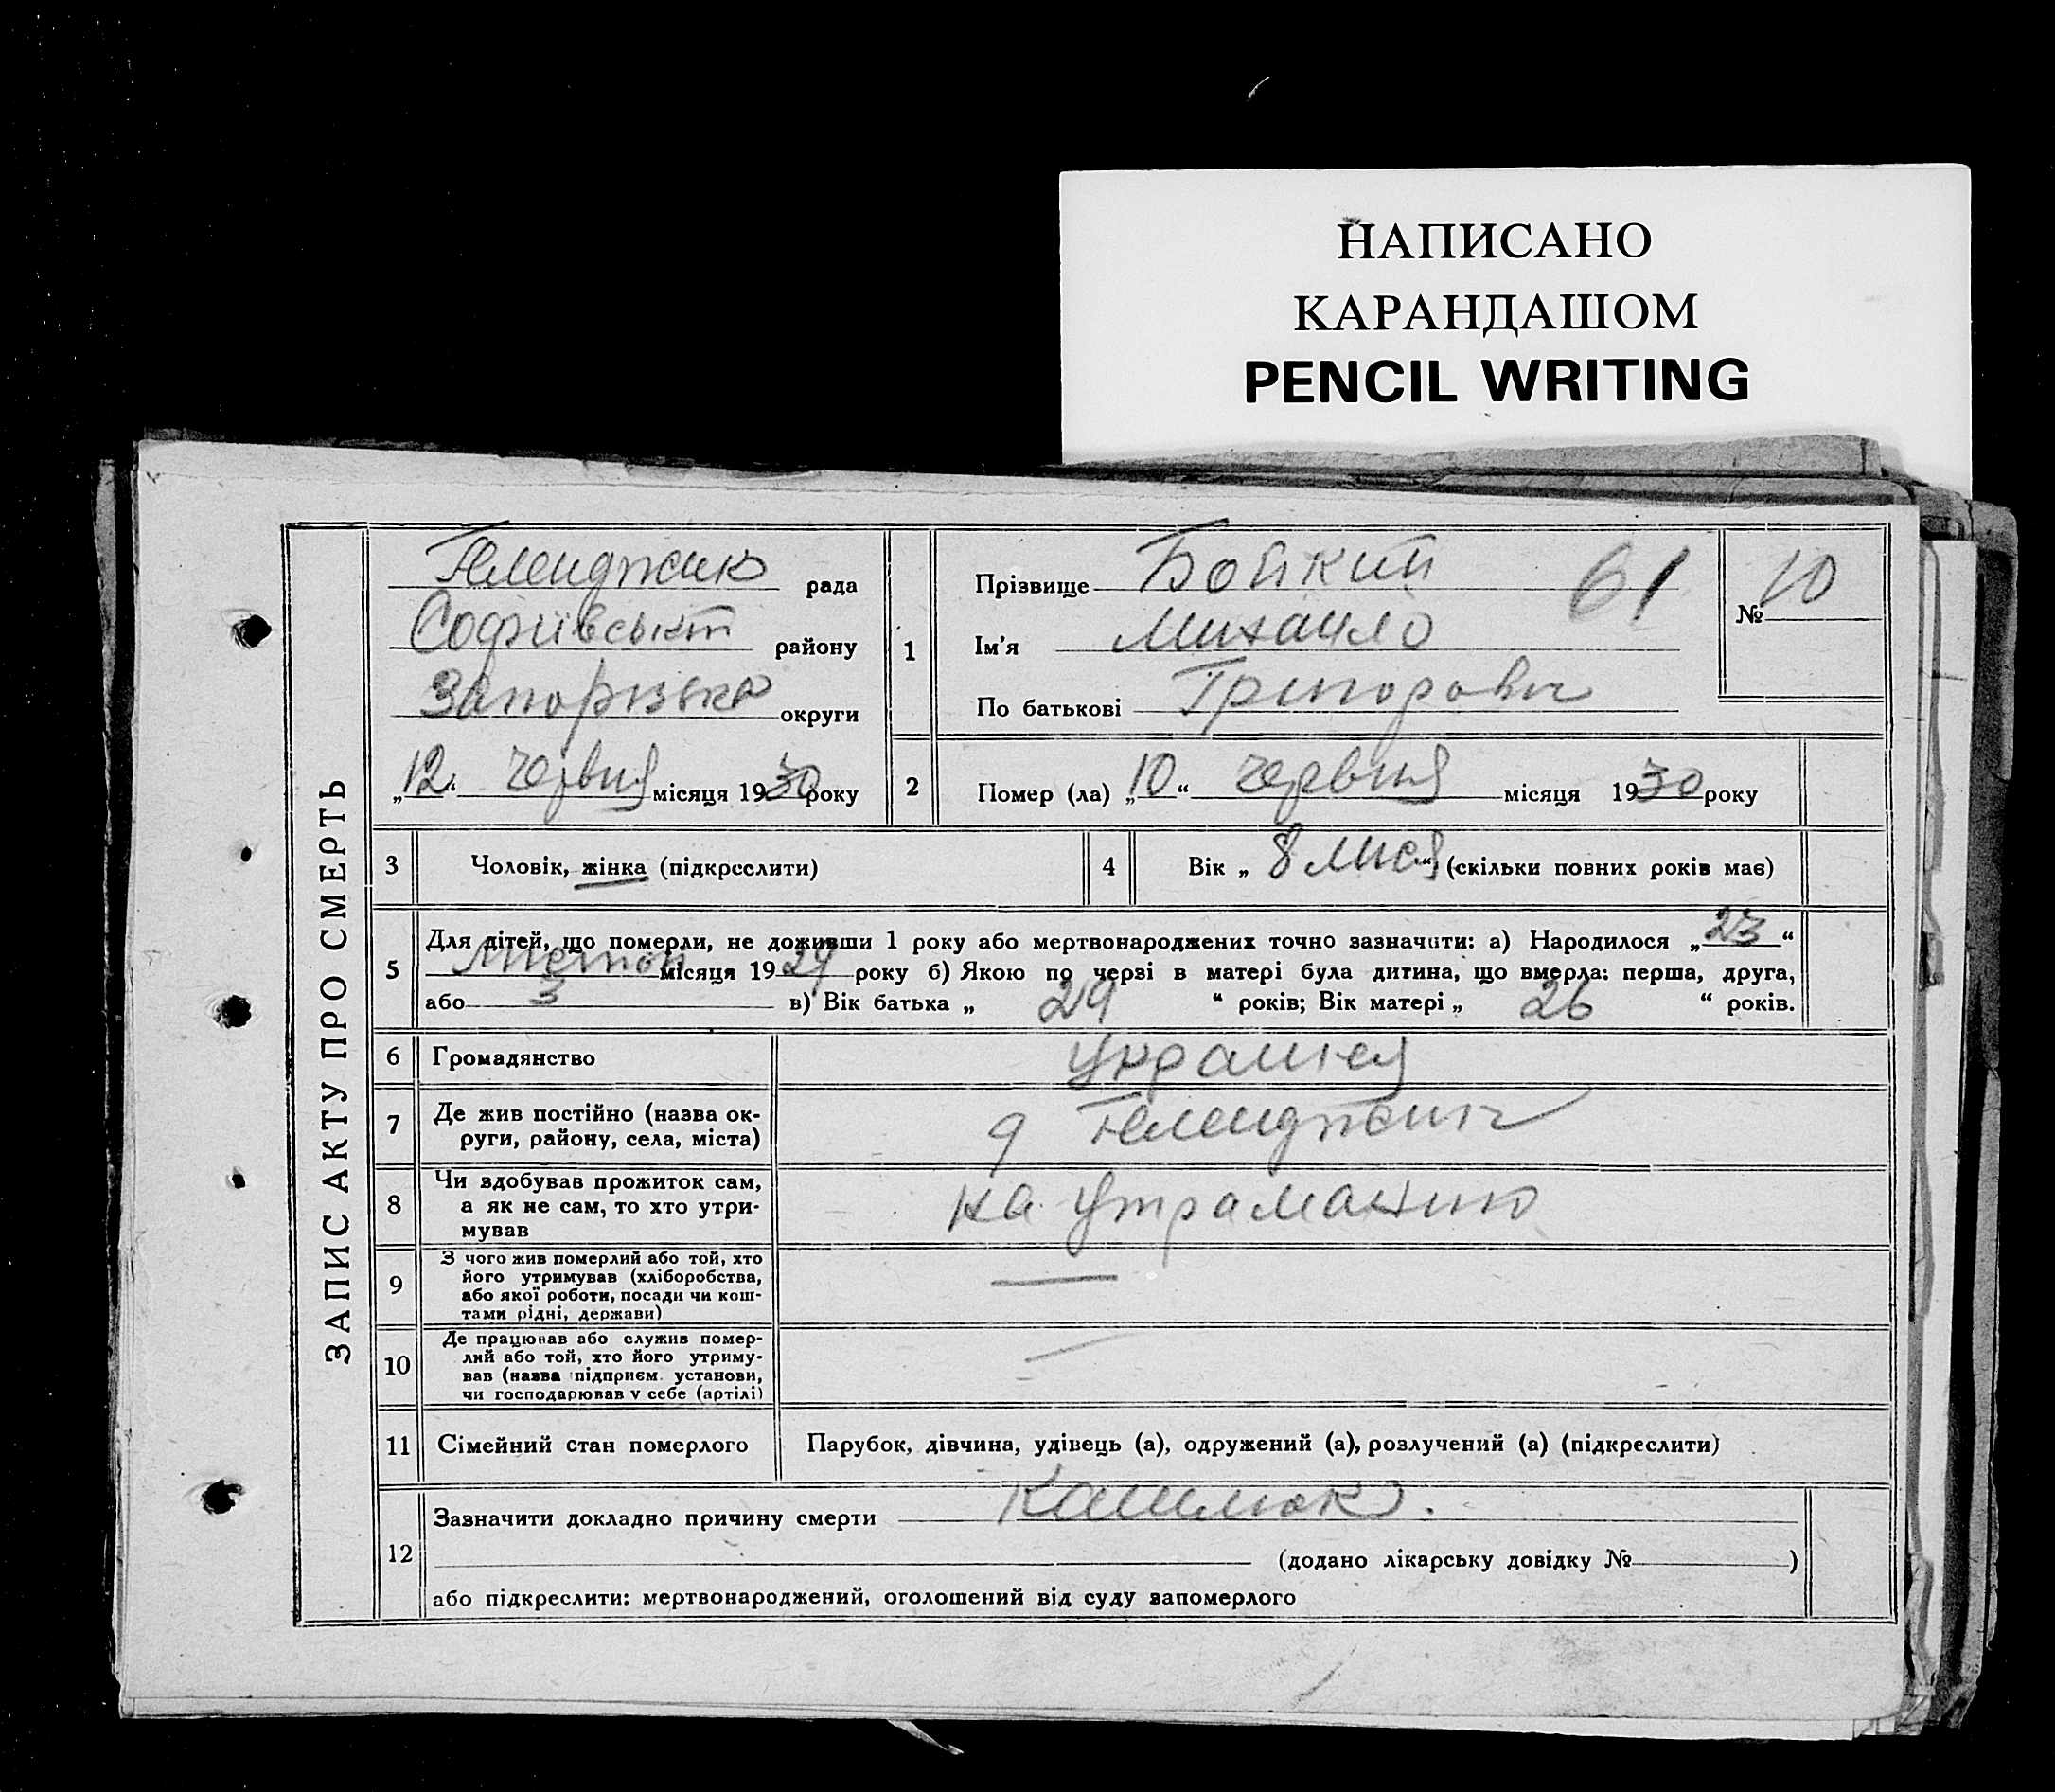 НАПИСАНО
КАРАНДАШОМ
PENCIL WRITING
ЗАПИС АКТУ ПРО СМЕРТЬ
Геленджик рада
Софиївськ району
Запоризька округи
„12“ червня місяця 1930 року
1
Прізвище Бойкий 61
Ім'я Михайло
По батькові Григорович
№ 10
2 Помер (ла) „10“ червня місяця 1930 року
3 Чоловік, жінка (підкреслити)
4 Вік „ 8 мися “ (скільки повних років має)
5 Для дітей, що померли, не доживши 1 року або мертвонароджених точно зазначити: а) Народилося „23“
листоп місяця 1929 року б) Якою по черзі в матері була дитина, що вмерла: перша, друга,
або 3 в) Вік батька „ 29 “ років; Вік матері „ 26 “ років.
6 Громадянство
7 Де жив постійно (назва ок-
руги, району, села, міста) Геленджик
8 Чи здобував прожиток сам,
а як не сам, то хто утри-
мував на утраманию
9 З чого жив померлий або той, хто
його утримував (хліборобства,
або якої роботи, посади чи кош-
тами рідні, держави) —
10 Де працював або служив помер-
лий або той, хто його утриму-
вав (назва підприєм. установи,
чи господарював у себе (артілі) —
11 Сімейний стан померлого Парубок, дівчина, удівець (а), одружений (а), розлучений (а) (підкреслити)
12 Зазначити докладно причину смерти Кашлюк.
(додано лікарську довідку № )
або підкреслити: мертвонароджений, оголошений від суду запомерлого